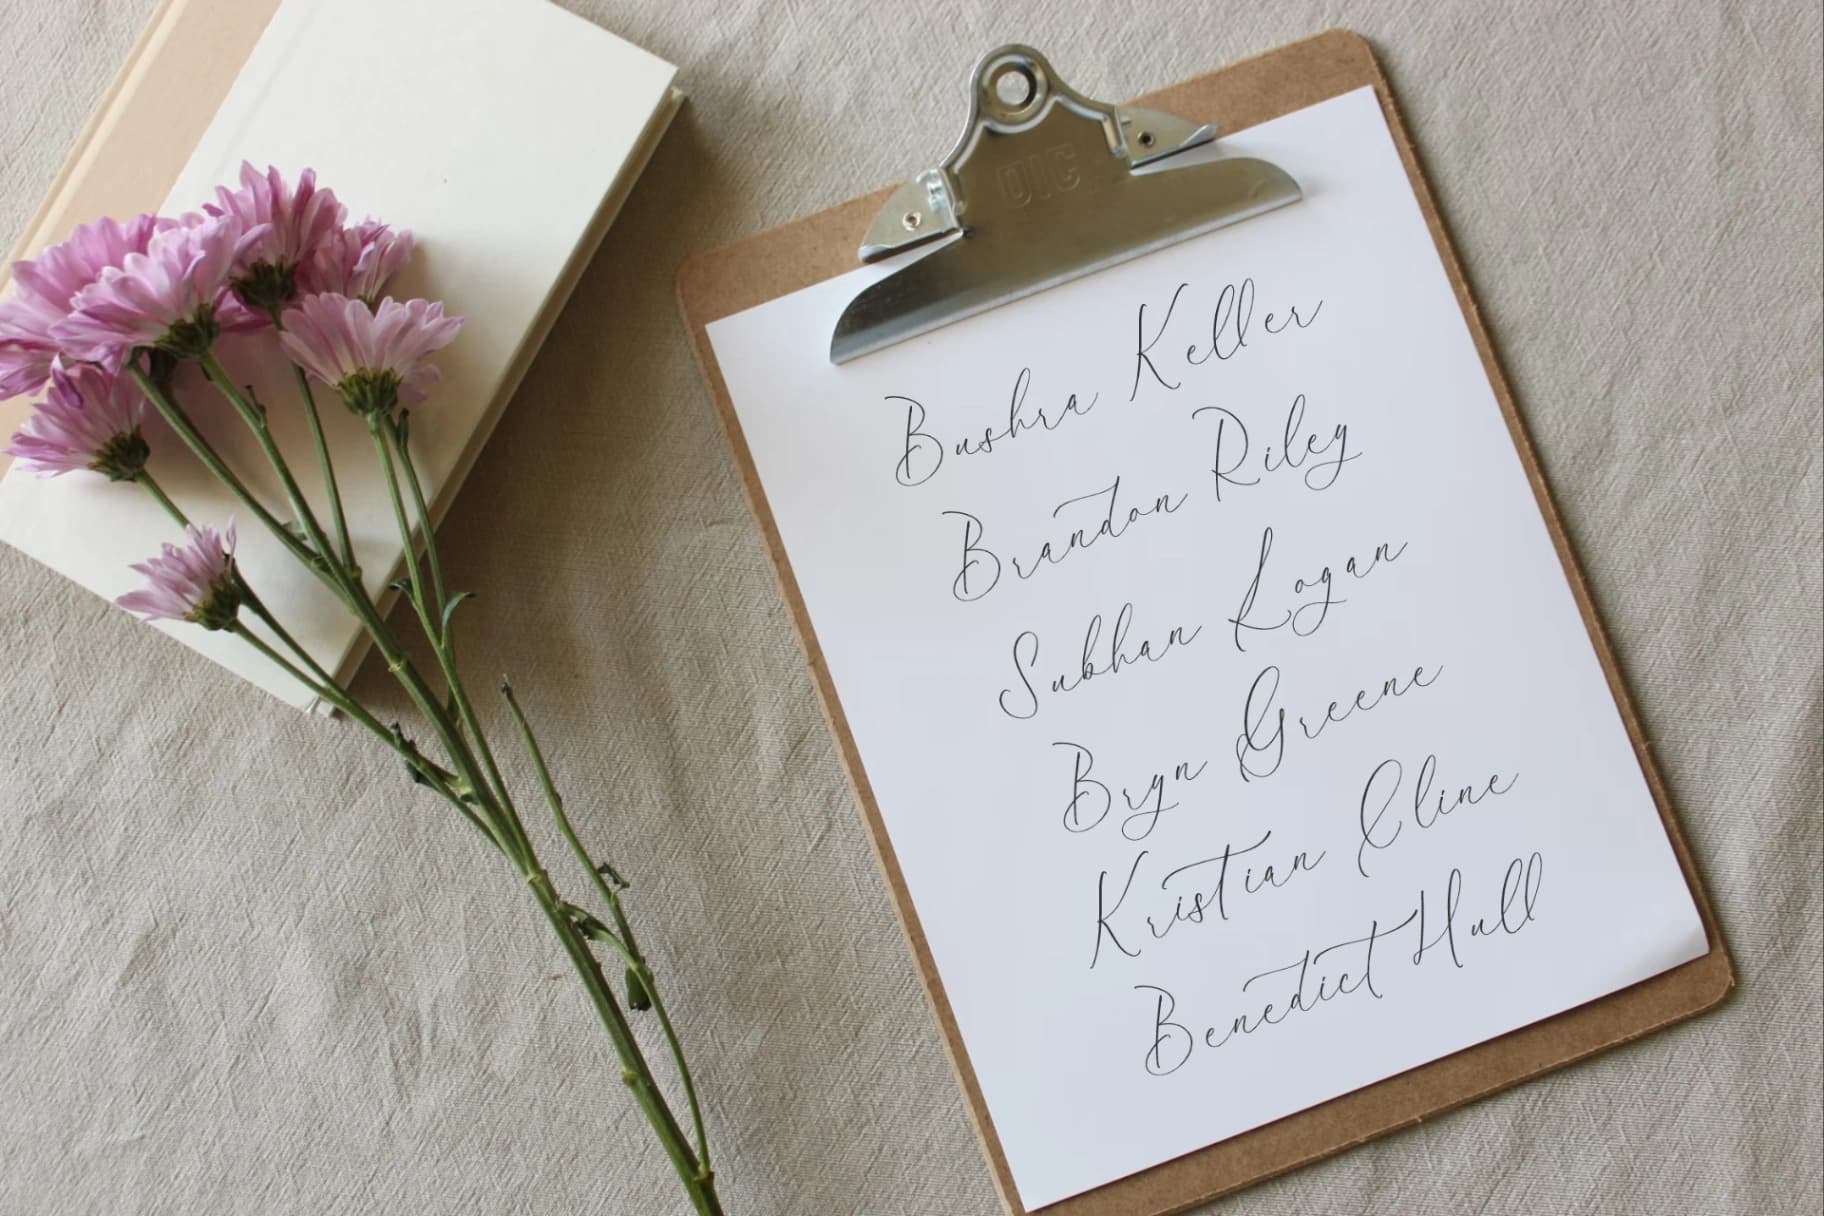 OIC
Bushra Keller
Brandon Riley
Subhan Logan
Bryn Greene
Kristian Cline
Benedict Hull